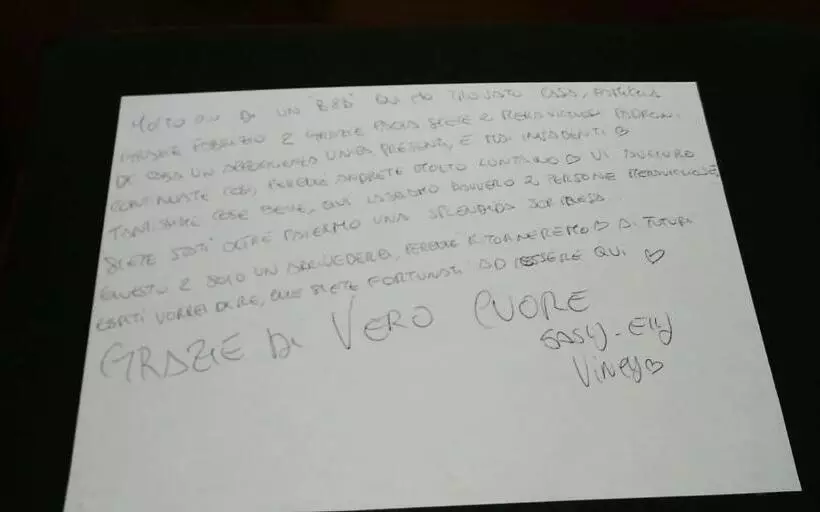 MOLTO PIÙ DI UN "B&B" QUI HO TROVATO CASA, FAMIGLIA
GRAZIE FABRIZIO E GRAZIE PAOLA SIETE 2 MERAVIGLIOSI PADRONI
DI CASA UN RIFERIMENTO UNICO PRESENTI, E MAI INVADENTI ♡
CONTINUATE COSÌ, PERCHÈ ANDRETE MOLTO LONTANO ♡ VI AUGURO
TANTISSIME COSE BELLE, QUI LASCIAMO DAVVERO 2 PERSONE MERAVIGLIOSE,
SIETE STATI OLTRE PALERMO UNA SPLENDIDA SORPRESA.
QUESTO È SOLO UN ARRIVEDERCI, PERCHÈ RITORNEREMO ♡ AI FUTURI
OSPITI VORREI DIRE, CHE SIETE FORTUNATI AD ESSERE QUI ♡
GRAZIE DI VERO CUORE
SASY - ELY